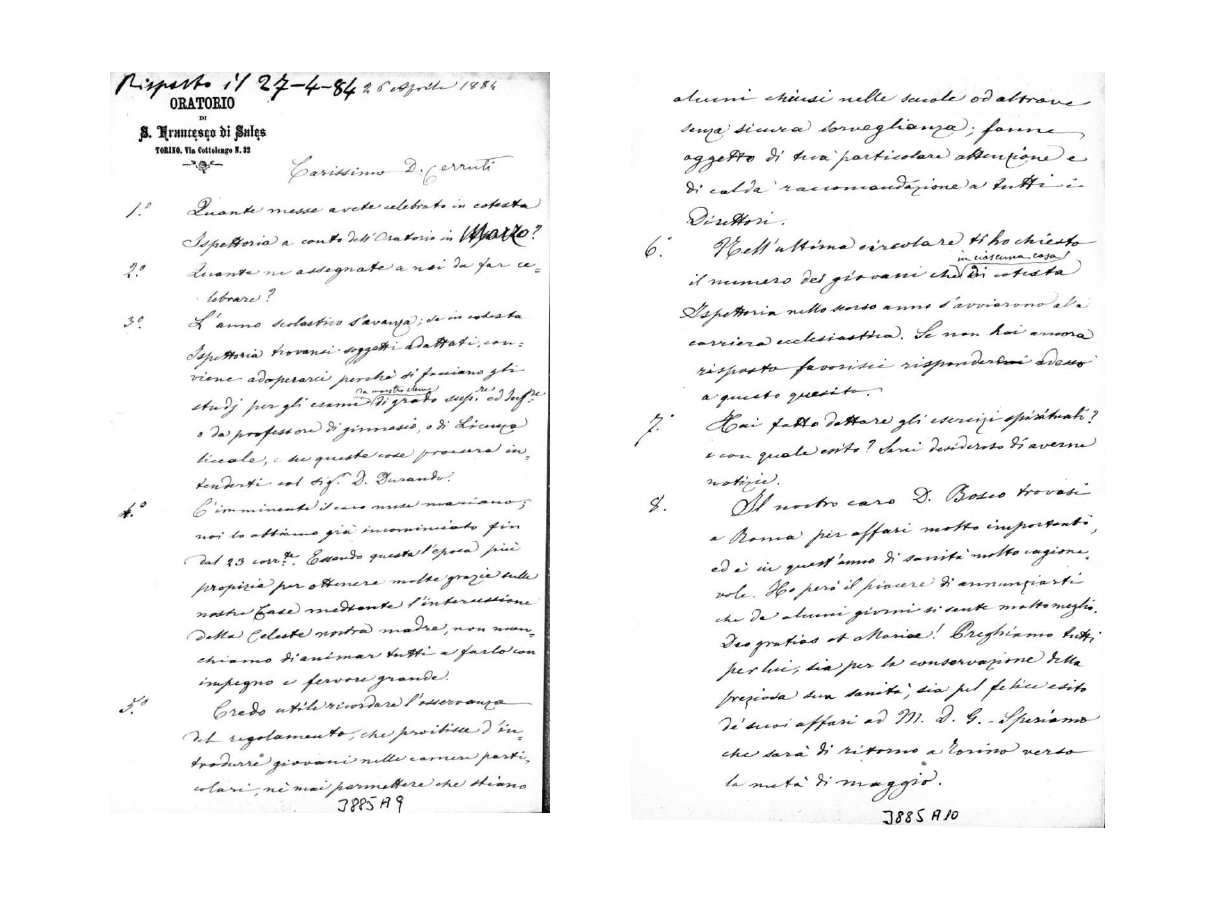 Risposto il 27-4-84 26 Aprile 1884
ORATORIO
DI
S. Francesco di Sales
TORINO, Via Cottolengo N. 32
Carissimo D. Cerruti
1.° Quante messe avete celebrato in cotesta
Ispettoria a conto dell'Oratorio in Marzo?
2.° Quante ne assegnate a noi da far ce-
lebrare?
3.° L'anno scolastico s'avanza; se in cotesta
Ispettoria trovansi soggetti adattati, con-
viene adoperarci perchè si facciano gli
da maestro elem.
studj per gli esami di grado sup.re ed inf.re
o da professore di ginnasio, o di Licenza
liceale, e su queste cose procura in-
tenderti col Sig. D. Durando.
4.° È imminente il caro mese mariano;
noi lo abbiamo già incominciato fin
dal 23 corr.te. Essendo questa l'epoca più
propizia per ottenere molte grazie sulle
nostre Case mediante l'intercessione
della Celeste nostra madre, non man-
chiamo di animar tutti a farlo con
impegno e fervore grande.
5.° Credo utile ricordare l'osservanza
del regolamento, che proibisce d'in-
trodurre giovani nelle camere parti-
colari, nè mai permettere che stiano
J885A9
alunni chiusi nelle scuole od altrove
senza sicura sorveglianza; fanne
oggetto di tua particolare attenzione e
di calda raccomandazione a tutti i
Direttori.
6.° Nell'ultima circolare ti ho chiesto
in ciascuna casa
il numero dei giovani che di cotesta
Ispettoria nello scorso anno s'avviarono alla
carriera ecclesiastica. Se non hai ancora
risposto favorisci rispondermi adesso
a questo quesito.
7.° Hai fatto dettare gli esercizi spirituali?
e con quale esito? Sarei desideroso di averne
notizie.
8. Il nostro caro D. Bosco trovasi
a Roma per affari molto importanti,
ed è in quest'anno di sanità molto cagione-
vole. Ho però il piacere di annunziarti
che da alcuni giorni si sente molto meglio.
Deo gratias et Mariae! Preghiamo tutti
per lui, sia per la conservazione della
preziosa sua sanità, sia pel felice esito
de' suoi affari ad M. D. G. - Speriamo
che sarà di ritorno a Torino verso
la metà di maggio.
J885A10